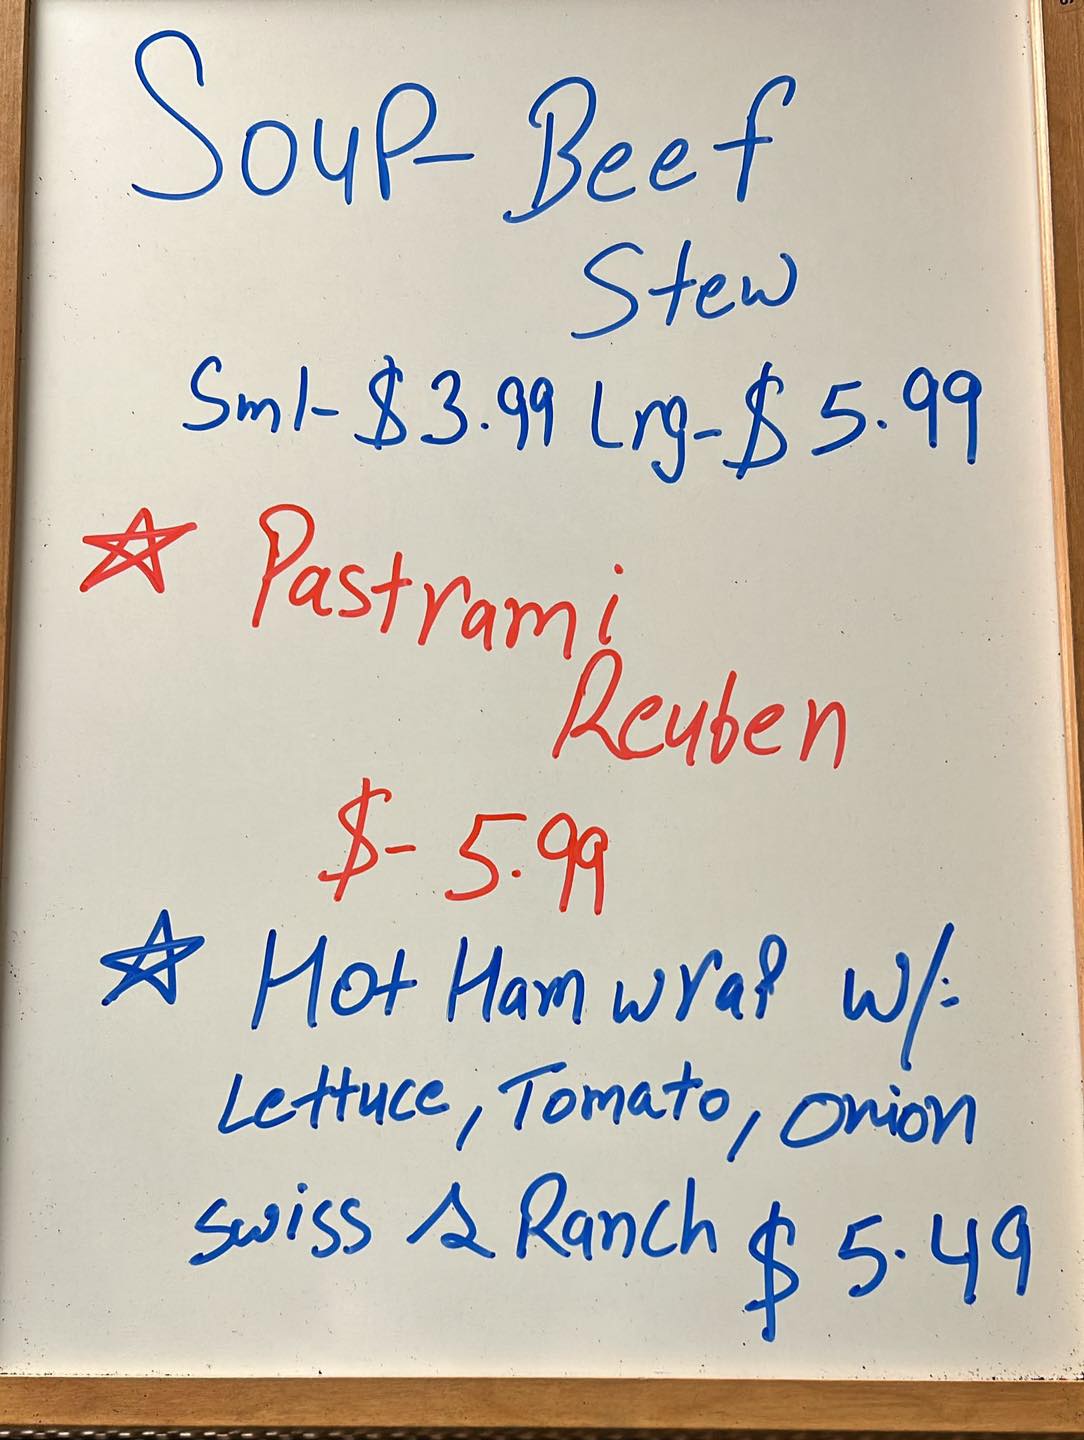 Soup- Beef
Stew
Sml- $3.99 Lrg- $5.99
☆ Pastrami
Reuben
$- 5.99
☆ Hot Ham wrap w/:
Lettuce, Tomato, Onion
Swiss & Ranch $5.49